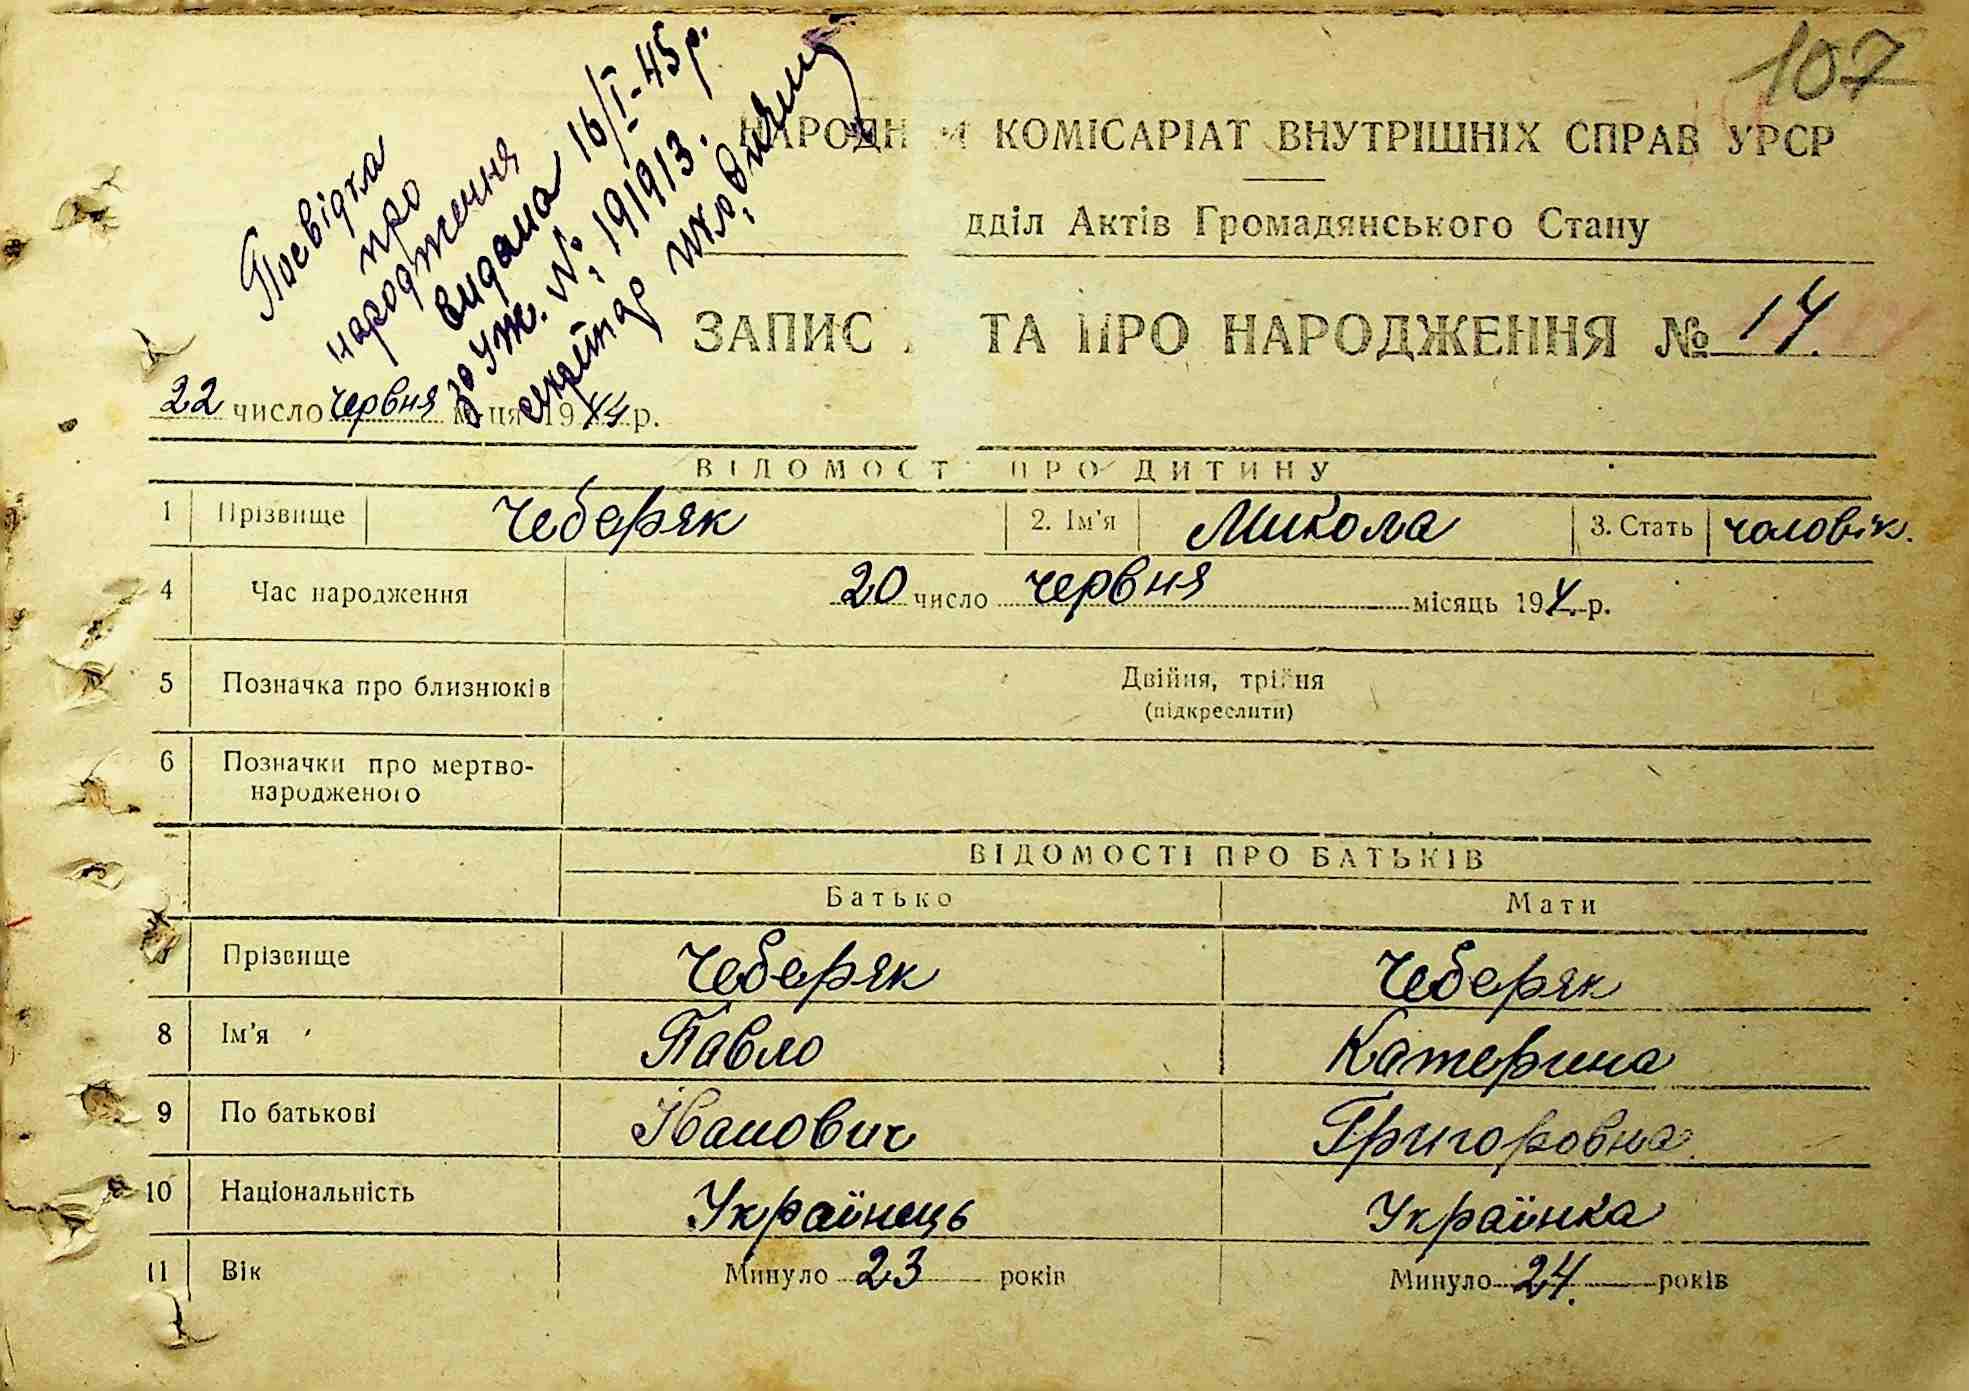 107
Посвідка
про
народження
видана 16/I-45 р.
за Уж. № 191913.
НАРОДН И КОМІСАРІАТ ВНУТРІШНІХ СПРАВ УРСР
дділ Актів Громадянського Стану
ЗАПИС ТА ПРО НАРОДЖЕННЯ № 14.
22 число червня м ця 1944 р.
ВІДОМОСТ ПРО ДИТИНУ
1 Прізвище Чеберяк 2. Ім'я Микола 3. Стать чоловік.
4 Час народження 20 число червня місяць 194 4. р.
5 Позначка про близнюків Двійня, трійня
(підкреслити)
6 Позначки про мертво-
народженого
ВІДОМОСТІ ПРО БАТЬКІВ
Батько Мати
Прізвище Чеберяк Чеберяк
8 Ім'я Павло Катерина
9 По батькові Іванович Григоровна
10 Національність Українець Українка
11 Вік Минуло 23 років Минуло 24. років